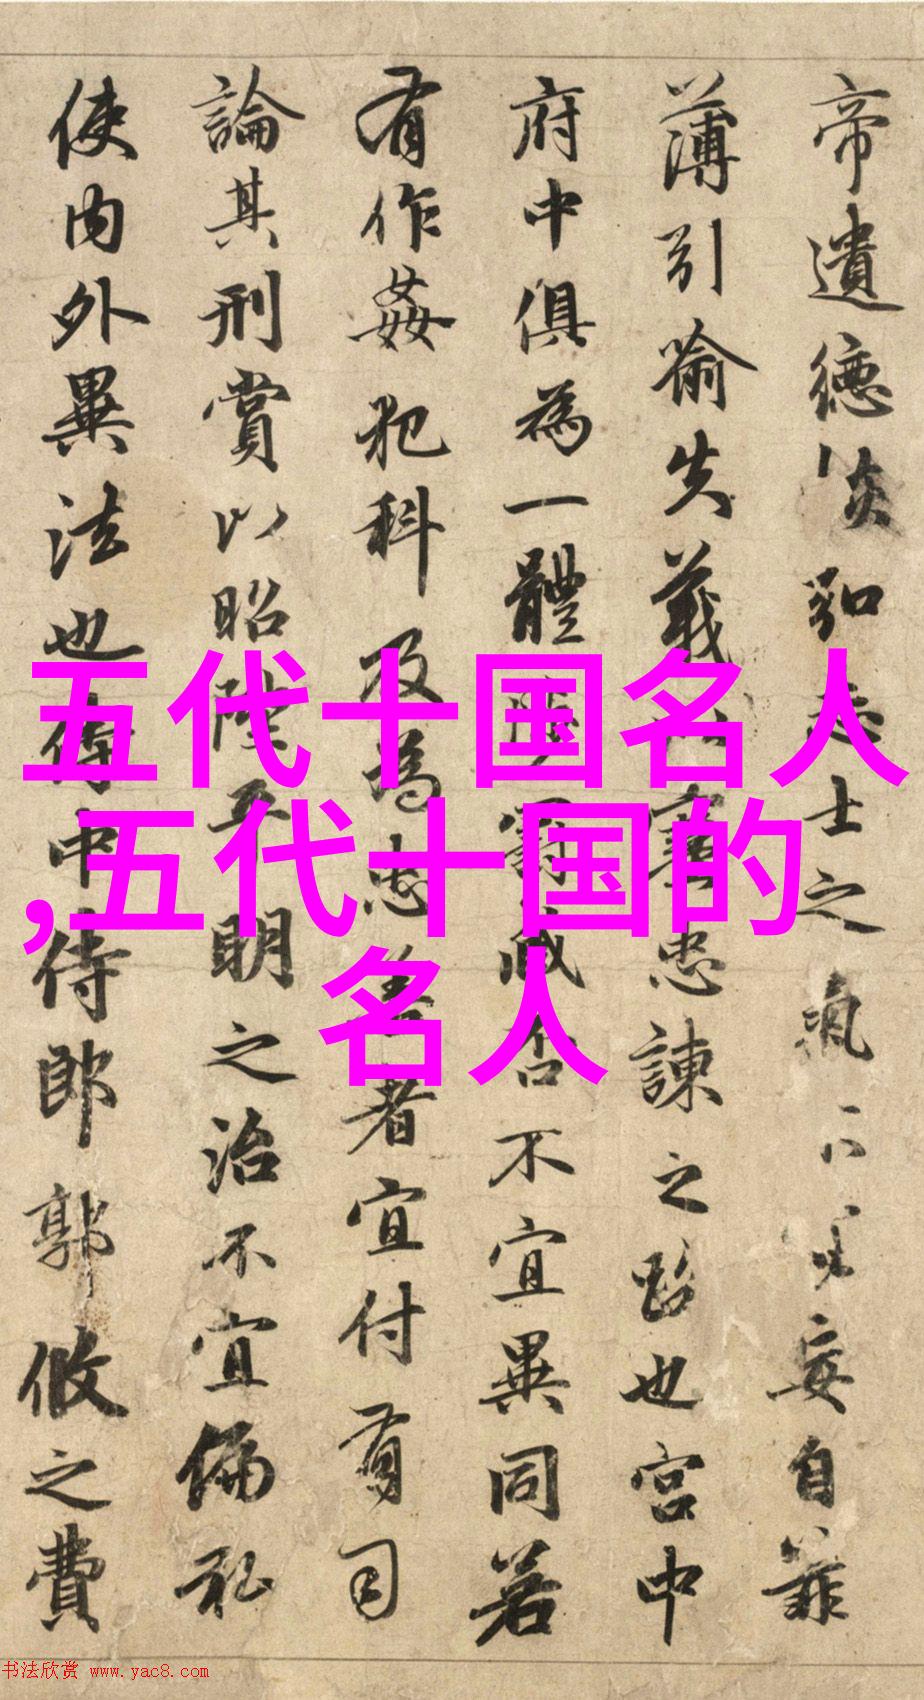 帝遺德恢弘志士之氣不宜妄自菲
薄引喻失義以塞忠諫之路也宮中
府中俱為一體陟罰臧否不宜異同若
有作姦犯科及為忠善者宜付有司
論其刑賞以昭陛平明之治不宜偏私
使內外異法也侍中侍郎郭攸之費
五代十国名人
,五代十国的
名人
书法欣赏 www.yac8.com